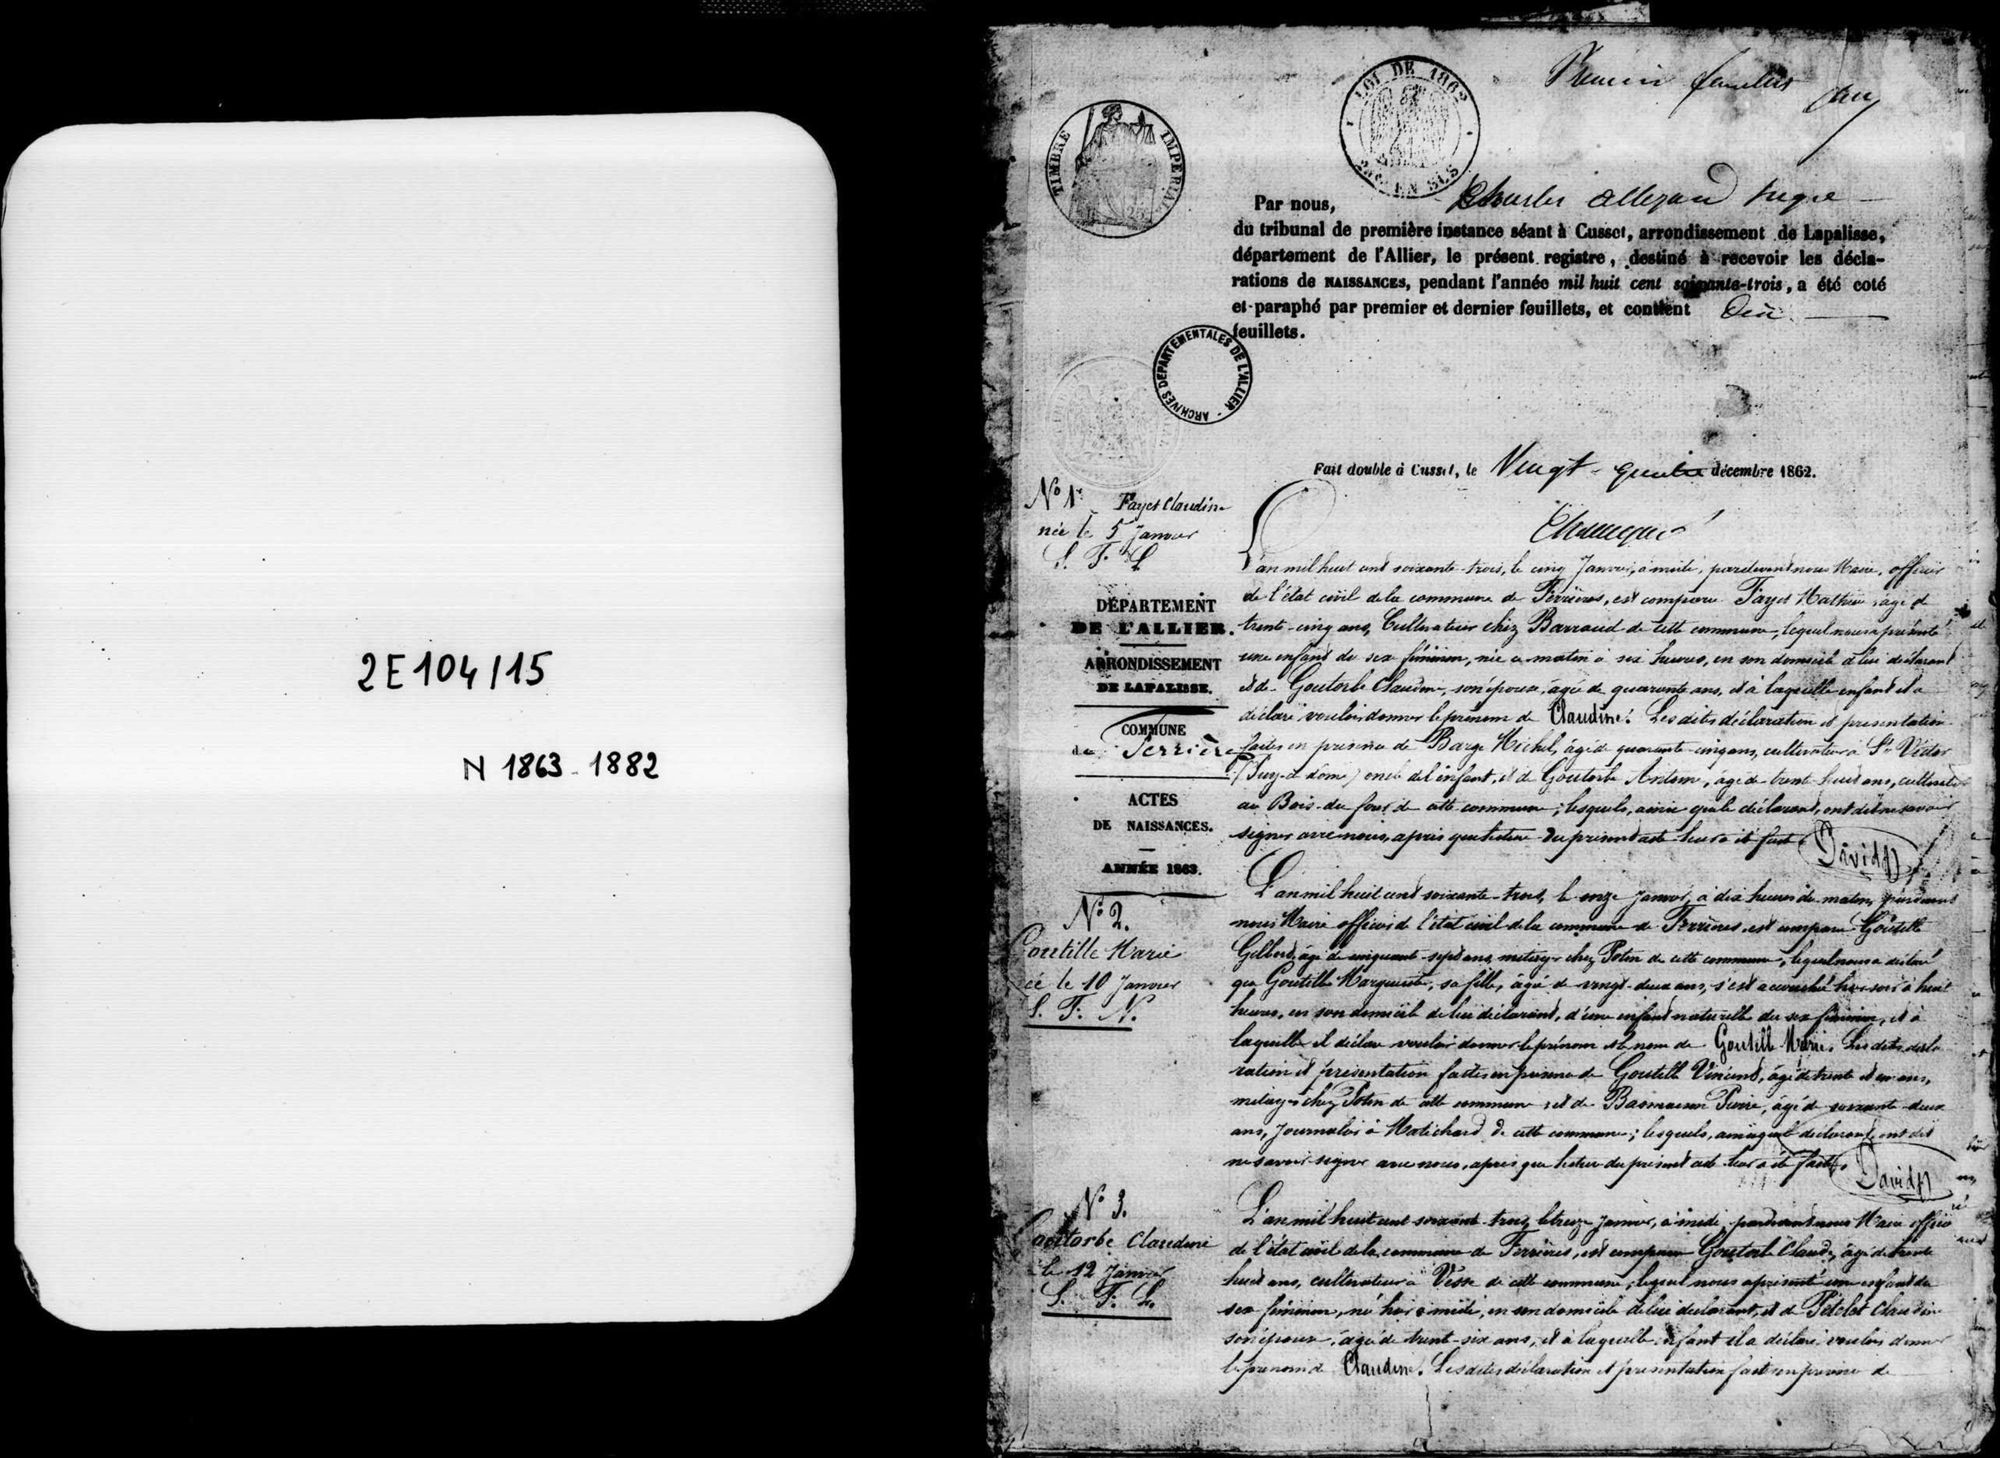 2E104/15
N 1863-1882
Premier feuillet
LOI DE 1862
EN SUS
TIMBRE IMPÉRIAL
Par nous, Charles juge
du tribunal de première instance séant à Cusset, arrondissement de Lapalisse,
département de l'Allier, le présent registre, destiné à recevoir les décla-
rations de NAISSANCES, pendant l'année mil huit cent soixante-trois, a été coté
et paraphé par premier et dernier feuillets, et contient
feuillets.
ARCHIVES DÉPARTEMENTALES DE L'ALLIER
Fait double à Cusset, le Vingt décembre 1862.
No 1er Fayet Claudine
née le 5 Janvier
S. F. L
DÉPARTEMENT
DE L'ALLIER.
ARRONDISSEMENT
DE LAPALISSE.
COMMUNE
de Ferrières
ACTES
DE NAISSANCES.
ANNÉE 1863.
L'an mil huit cent soixante-trois, le cinq Janvier, à midi, pardevant nous Maire, officier
de l'état civil de la commune de Ferrières, est comparu Fayet Mathieu, âgé de
trente-cinq ans, Cultivateur chez Barraud de cette commune, lequel nous a présenté
une enfant du sex féminin, née ce matin à six heures, en son domicile, de lui déclarant
et de Goutorbe Claudine, son épouse, âgée de quarante ans, et à laquelle enfant il a
déclaré vouloir donner le prénom de Claudine. Les dites déclaration et presentation
faites en présence de Barge Michel, âgé de quarante-cinq ans, cultivateur à St Victor
(Puy-de-dôme) oncle de l'enfant, et de Goutorbe Antoine, âgé de trente huit ans, cultivateur
au Bois-du-four de cette commune; lesquels, ainsi que le déclarant, ont dit ne savoir
signer avec nous, après que lecture du présent acte leur a été faite.
David
No 2.
Goutille Marie
née le 10 Janvier
S. F. N.
L'an mil huit cent soixante-trois, le onze Janvier, à dix heures du matin, pardevant
nous Maire officier de l'état civil de la commune de Ferrières, est comparu Goutille
Gilbert, âgé de cinquante-sept ans, métayer chez Potin de cette commune, lequel nous a déclaré
que Goutille Marguerite, sa fille, âgée de vingt-deux ans, s'est accouchée hier soir à huit
heures, en son domicile de lui déclarant, d'une enfant naturelle du sex féminin, et à
laquelle il déclare vouloir donner le prénom et le nom de Goutille Marie. Les dites décla
ration et présentation faites en présence de Goutille Vincent, âgé de trente et un ans,
métayer chez Potin de cette commune et de Pierre, âgé de soixante-deux
ans, Journalier à Matichard de cette commune; lesquels, ainsi que le déclarant, ont dit
ne savoir signer avec nous, après que lecture du présent acte leur a été faite.
David
No 3.
Goutorbe Claudine
le 12 Janvier
S. F. L.
L'an mil huit cent soixante-trois, le treize Janvier, à midi, pardevant nous Maire officier
de l'état civil de la commune de Ferrières, est comparu Goutorbe Claude, âgé de trente
huit ans, cultivateur à Vesse de cette commune, lequel nous a présenté une enfant du
sex féminin, né hier à midi, en son domicile de lui déclarant, et de Pételet Claudine
son épouse, âgée de trente-six ans, et à laquelle enfant il a déclaré vouloir donner
le prénom de Claudine. Les dites déclaration et présentation faites en présence de